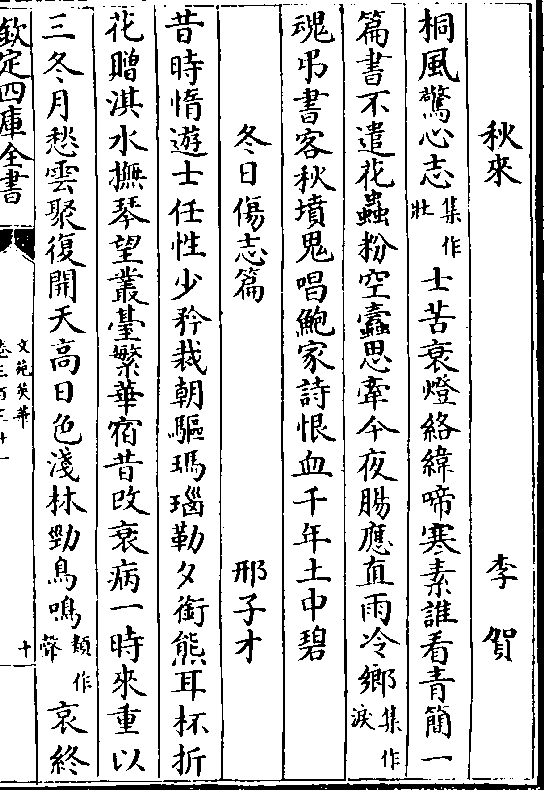 秋來　李賀
桐風驚心志集作壯士苦衰燈絡緯啼寒素誰看青簡一
篇書不遣花蟲粉空蠹思牽今夜腸應直雨冷鄉集作淚
魂弔書客秋墳鬼唱鮑家詩恨血千年土中碧
冬日傷志篇　邢子才
昔時惰遊士任性少矜裁朝驅瑪瑙勒夕銜熊耳杯折
花贈淇水撫琴望叢臺繁華宿昔改衰病一時來重以
三冬月愁雲聚復開天高日色淺林勁鳥鳴類作聲哀終
欽定四庫全書
文苑英華
卷三百三十一
十